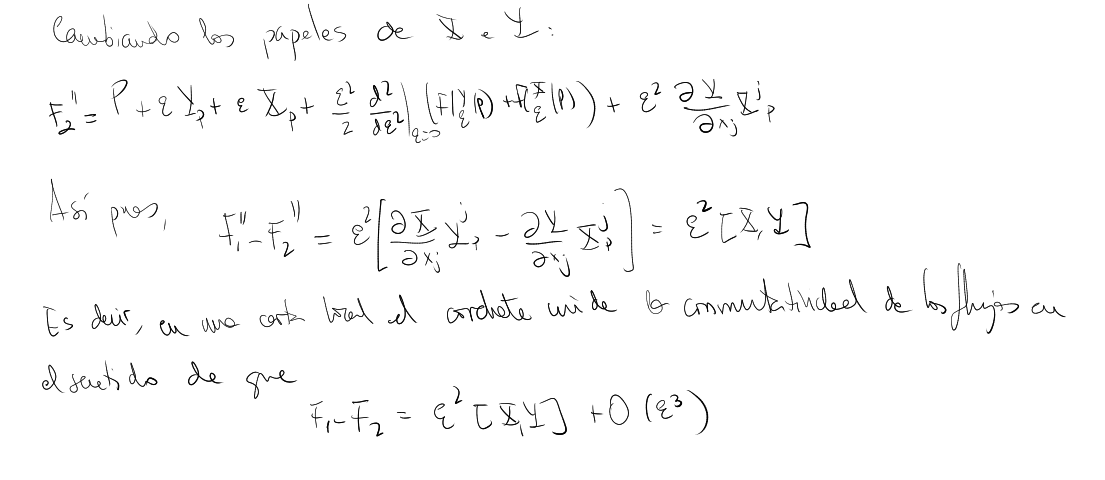 Cambiando los papeles de X e Y:
F₂'' = P + ε Y_p + ε X_p + ε²/2 d²/dε² |_{ε=0} (Fl^Y_ε(p) + Fl^X_ε(p)) + ε² ∂Y/∂x_j X^j_p
Así pues, F₁'' - F₂'' = ε² [∂X/∂x_j Y^j_p - ∂Y/∂x_j X^j_p] = ε² [X, Y]
Es decir, en una carta local el corchete mide la conmutatividad de los flujos en
el sentido de que
F₁ - F₂ = ε² [X, Y] + O(ε³)